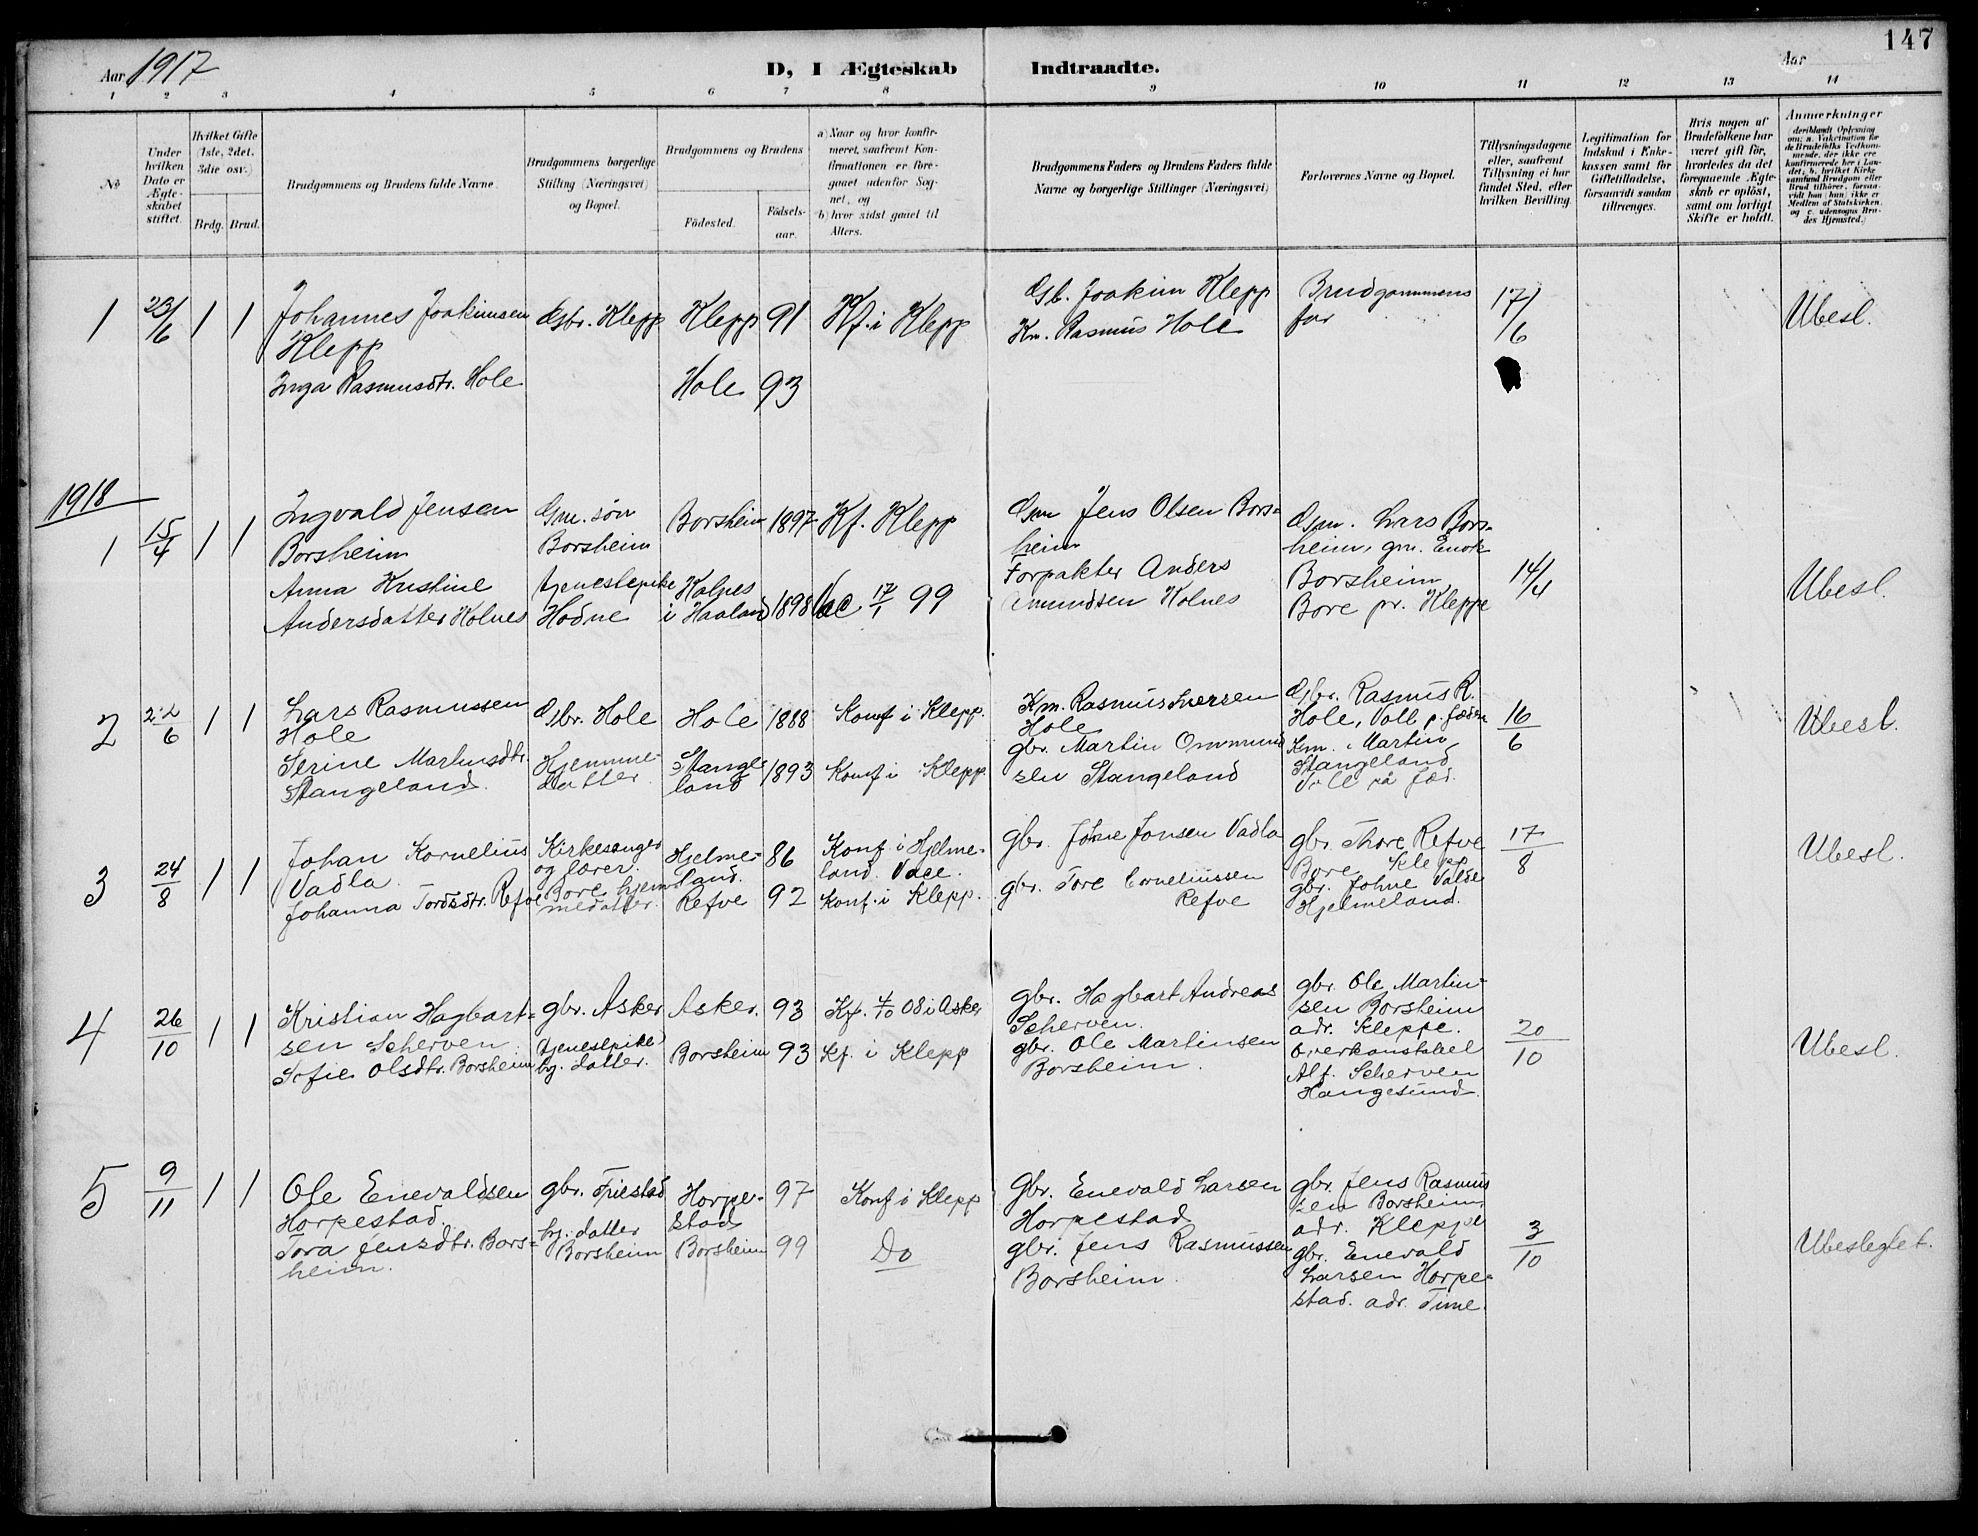 Aar 1917
D, I Ægteskab Indtraadte.
Aar
147
1 2 3 4 5 6 7 8 9 10 11 12 13 14
No
Under hvilken Dato er Ægteskabet stiftet.
Hvilket Gifte (1ste, 2det, 3die osv.)
Brdg. Brud.
Brudgommens og Brudens fulde Navne.
Brudgommens borgerlige Stilling (Næringsvei) og Bopæl.
Brudgommens og Brudens
Fødested. Fødselsaar.
a) Naar og hvor konfirmeret, saafremt Konfirmationen er foregaaet udenfor Sognet, og
b) hvor sidst gaaet til Alters.
Brudgommens Faders og Brudens Faders fulde Navne og borgerlige Stillinger (Næringsvei)
Forlovernes Navne og Bopæl.
Tillysningsdagene eller, saafremt Tillysning ei har fundet Sted, efter hvilken Bevilling.
Legitimation for Indskud i Enkekassen samt for Giftetilladelse, forsaavidt saadan tiltrænges.
Hvis nogen af Brudefolkene har været gift før, hvorledes da det foregaaende Ægteskab er opløst, samt om lovligt Skifte er holdt.
Anmærkninger
1 23/6 1 1
Johannes Joakimsen
Klepp
Inga Rasmusdtr. Hole
Gbr. Klepp
Klepp 91
Hole 93
Kf. i Klepp
Gb. Joakim Klepp
Km. Rasmus Hole
Brudgommens
far
17/6
Ubesl.
1918
1 15/4 1 1
Ingvald Jensen
Borsheim
Anna Kristine
Andersdatter Kolnes
Gm. søn
Borsheim
tjenestepike
Hodne
Borsheim 1897
Kolnes
i Haaland 1898
Kf. Klepp
Vac 17/1 99
Gm Jens Olsen Bors-
heim
Forpakter Anders
Amundsen Kolnes
Gm. Lars Bors-
heim, gm. Enok
Borsheim,
Bore pr. Kleppe
14/4
Ubesl.
2 22/6 1 1
Lars Rasmussen
Hole
Serine Martinsdtr.
Stangeland.
Gbr. Hole
Hjemme-
datter
Hole 1888
Stange-
land 1893
Konf i Klepp.
Konf i Klepp.
Km. Rasmus Iversen
Hole
gbr. Martin Ommund
sen Stangeland
Gbr. Rasmus R.
Hole, Voll p. Jæderen
Km. Martin
Stangeland
Voll på Jæd.
16/6
Ubesl.
3 24/8 1 1
Johan Kornelius
Vadla.
Johanna Tordsdtr. Refve
Kirkesanger
og lærer.
Bore hjem-
medatter.
Hjelme-
land. 86
Refve 92
Konf i Hjelme-
land. Vace.
Konf. i Klepp.
gbr. Johne Jonsen Vadla
gbr. Tore Corneliussen
Refve
gbr Thore Refve
Bore, Klepp
gbr. Johne Valde
Hjelmeland.
17/8
Ubesl.
4 26/10 1 1
Kristian Hagbart-
sen Scherven.
Sofie Olsdtr. Borsheim
gbr. Asker.
tjenestpike
hj. datter.
Asker. 93
Borsheim 93
Kf. 4/10 08 i Asker
Kf. i Klepp
gbr. Hagbart Andreas
Scherven.
gbr. Ole Martinsen
Borsheim.
gbr. Ole Martin-
sen Borsheim
adr. Kleppe.
Overkonstabel
Alf. Scherven
Haugesund.
20/10
Ubesl.
5 9/11 1 1
Ole Enevaldsen
Horpestad
Tora Jensdtr. Bors-
heim.
gbr. Friestad
hj. datter
Borsheim
Horpe-
stad 97
Borsheim 99
Konf i Klepp
Do
Gbr. Enevald Larsen
Horpestad
gbr. Jens Rasmussen
Borsheim.
gbr. Jens Rasmus
sen Borsheim,
adr. Kleppe
gbr. Enevald
Larsen Horpe-
stad. adr. Time.
3/10
Ubeslegtet.